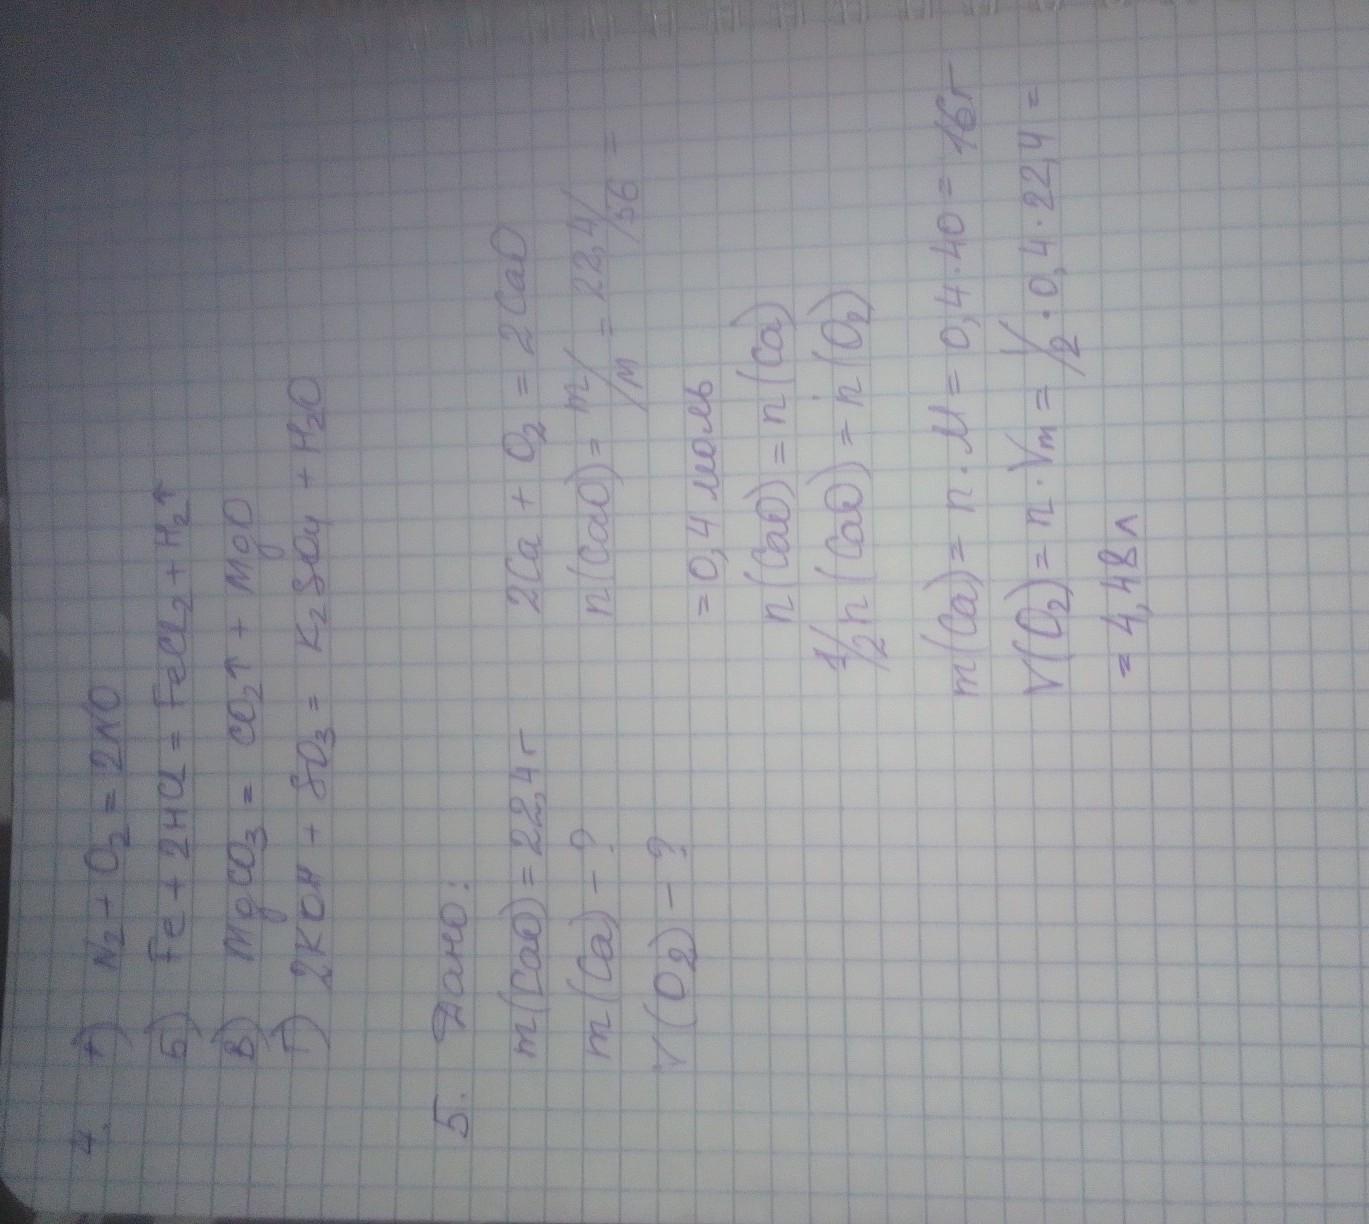 4. А) N₂ + O₂ = 2NO
Б) Fe + 2HCl = FeCl₂ + H₂↑
В) MgCO₃ = CO₂↑ + MgO
Г) 2KOH + SO₃ = K₂SO₄ + H₂O
5. Дано:
m(CaO) = 22,4 г
m(Ca) - ?
V(O₂) - ?
2Ca + O₂ = 2CaO
n(CaO) = m/M = 22,4/56 =
= 0,4 моль
n(CaO) = n(Ca)
1/2 n(CaO) = n(O₂)
m(Ca) = n · M = 0,4 · 40 = 16г
V(O₂) = n · Vm = 1/2 · 0,4 · 22,4 =
= 4,48 л